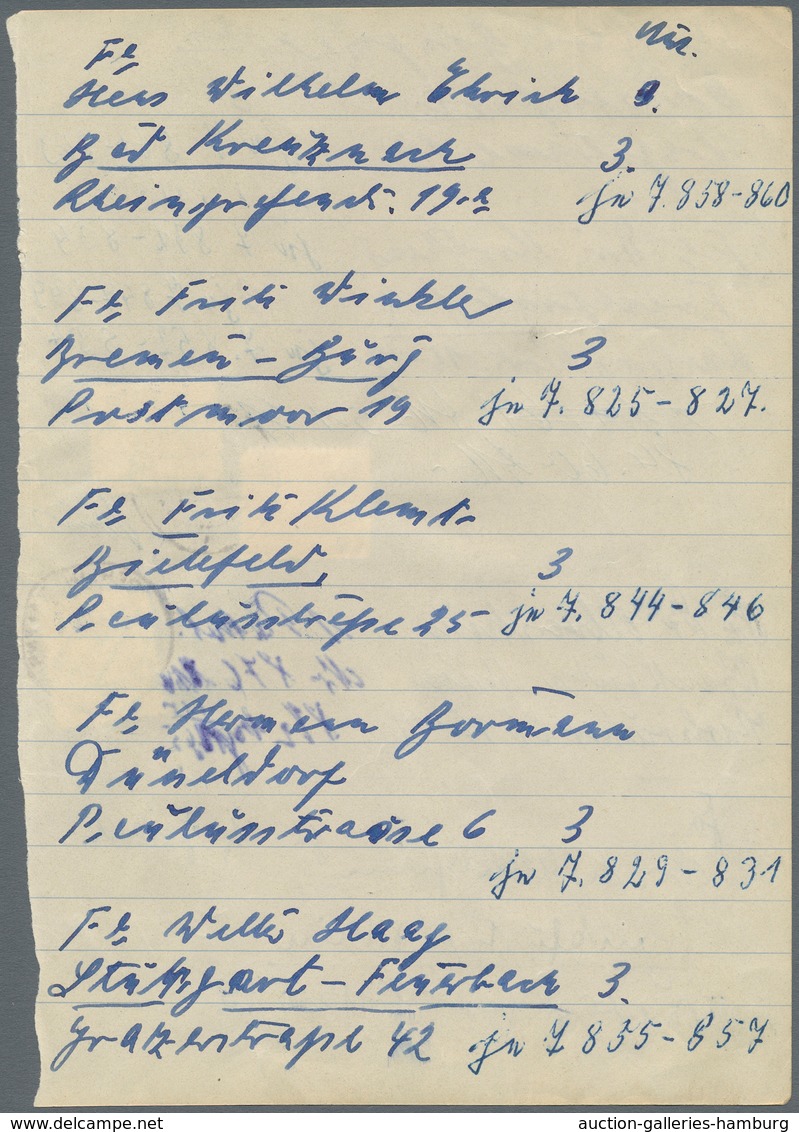 Fr
Herr Wilhelm Ehrich
Bad Kreuznach 3.
Rheingrafenstr. 19.a je 7.858-860
Fr. Fritz Winkler
Bremen - Burg 3
Postmoor 19 je 7. 825-827.
Fr. Fritz Klemt
Bielefeld, 3
Paulusstraße 25 je 7. 844-846
Fr. Hermann Bormann
Düsseldorf
Paulusstrasse 6 3
je 7. 829-831
Fr. Haag
Stuttgart - Feuerbach 3.
Grazerstraße 42 je 7 855-857
auction-galleries-hamburg